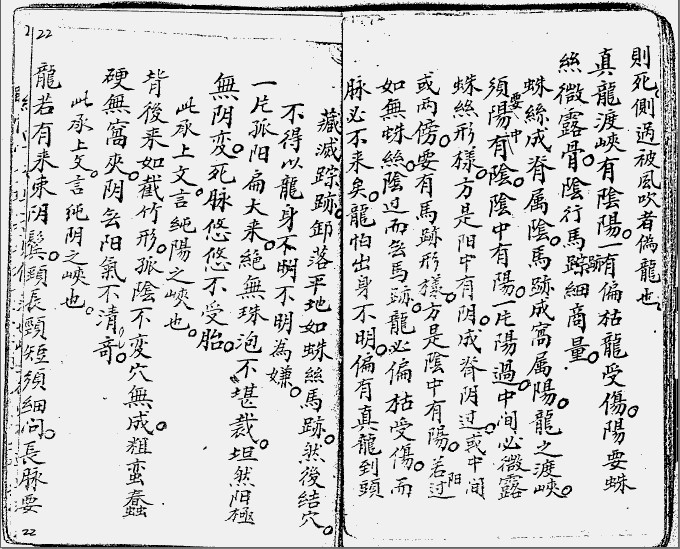 則死側過被風吹者偽龍也
真龍渡峽有陰陽一有偏枯龍受傷陽要蛛
絲微露骨陰行馬跡細商量
蛛絲成脊属陰馬跡成窩属陽龍之渡峽
須要陽中有陰陰中有陽一片陽過中间必微露
蛛絲形樣方是阳中有阴成脊阴过或中间
或两傍要有馬跡形樣方是陰中有陽若阳过
如無蛛絲陰过而無馬跡龍必偏枯受傷而
脉必不来矣龍怕出身不明偏有真龍到頭
藏滅踪跡卸落平地如蛛絲馬跡然後結穴
不得以龍身不明不明為嫌
一片孤阳扁大来絕無珠泡不堪裁坦然阳極
無阴变死脉悠悠不受胎
此承上文言純陽之峽也
背後来如截竹形孤陰不变穴無成粗蛮蠢
硬無窩夾阴無阳氣不清奇
此承上文言純阴之峽也
龍若有来束阴鬚頸長頸短須細问長脉要
22
22